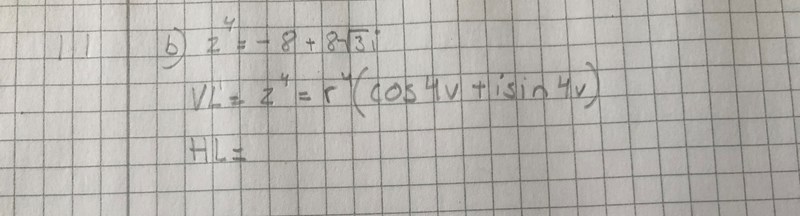 11 b) z⁴ = -8 + 8√3i
VL = z⁴ = r⁴(cos4v + isin4v)
HL =